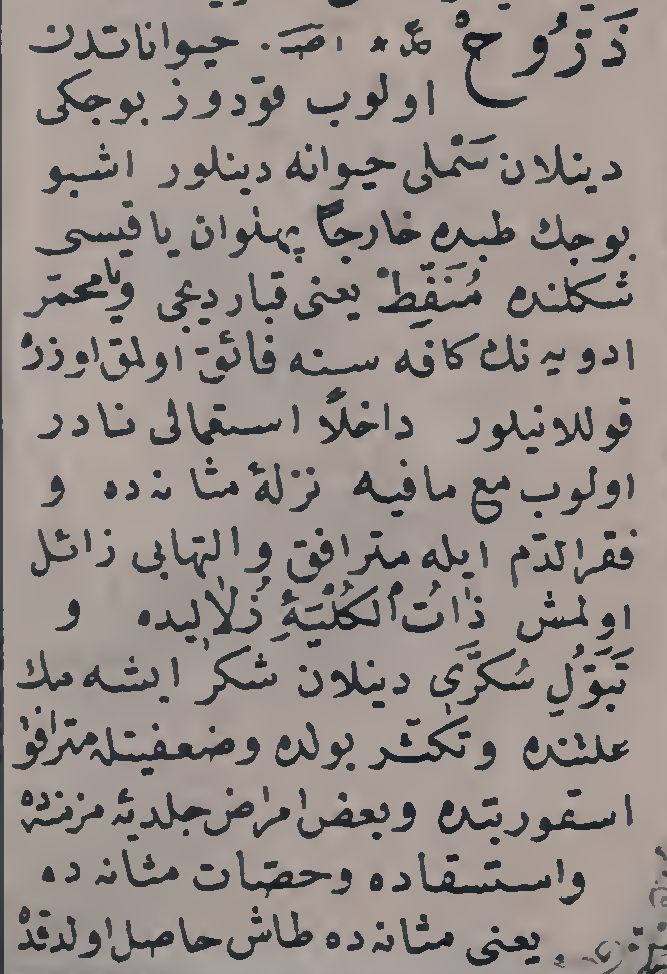 ذَرُّوحْ حیواناتدن
اولوب قودوز بوجکی
دینلان سَمّلی حیوانه دینلور اشبو
بوجك طبده خارجاً پهلوان یاقیسی
شکلنده مُنَفِّطْ یعنی قبارديجی ویامحمّر
ادویه نك کافه سنه فائق اولمق اوزره
قوللانیلور داخلاً استعمالی نادر
اولوب مع مافیه نزلهٔ مثانه ده و
فقرالدّم ایله مترافق والتهابی زائل
اولمش ذَاتُ الکُلْیَهٔ زُلَالِیده و
تَبَوُّلِ سُکَّرَی دینلان شکر ایشه مك
علتنده وتکثّر بولده وضعفیتله مترافق
اسقوربتده وبعض امراض جلدیهٔ مزمنه ده
واستسقاده وحصات مثانه ده
یعنی مثانه ده طاش حاصل اولدقده